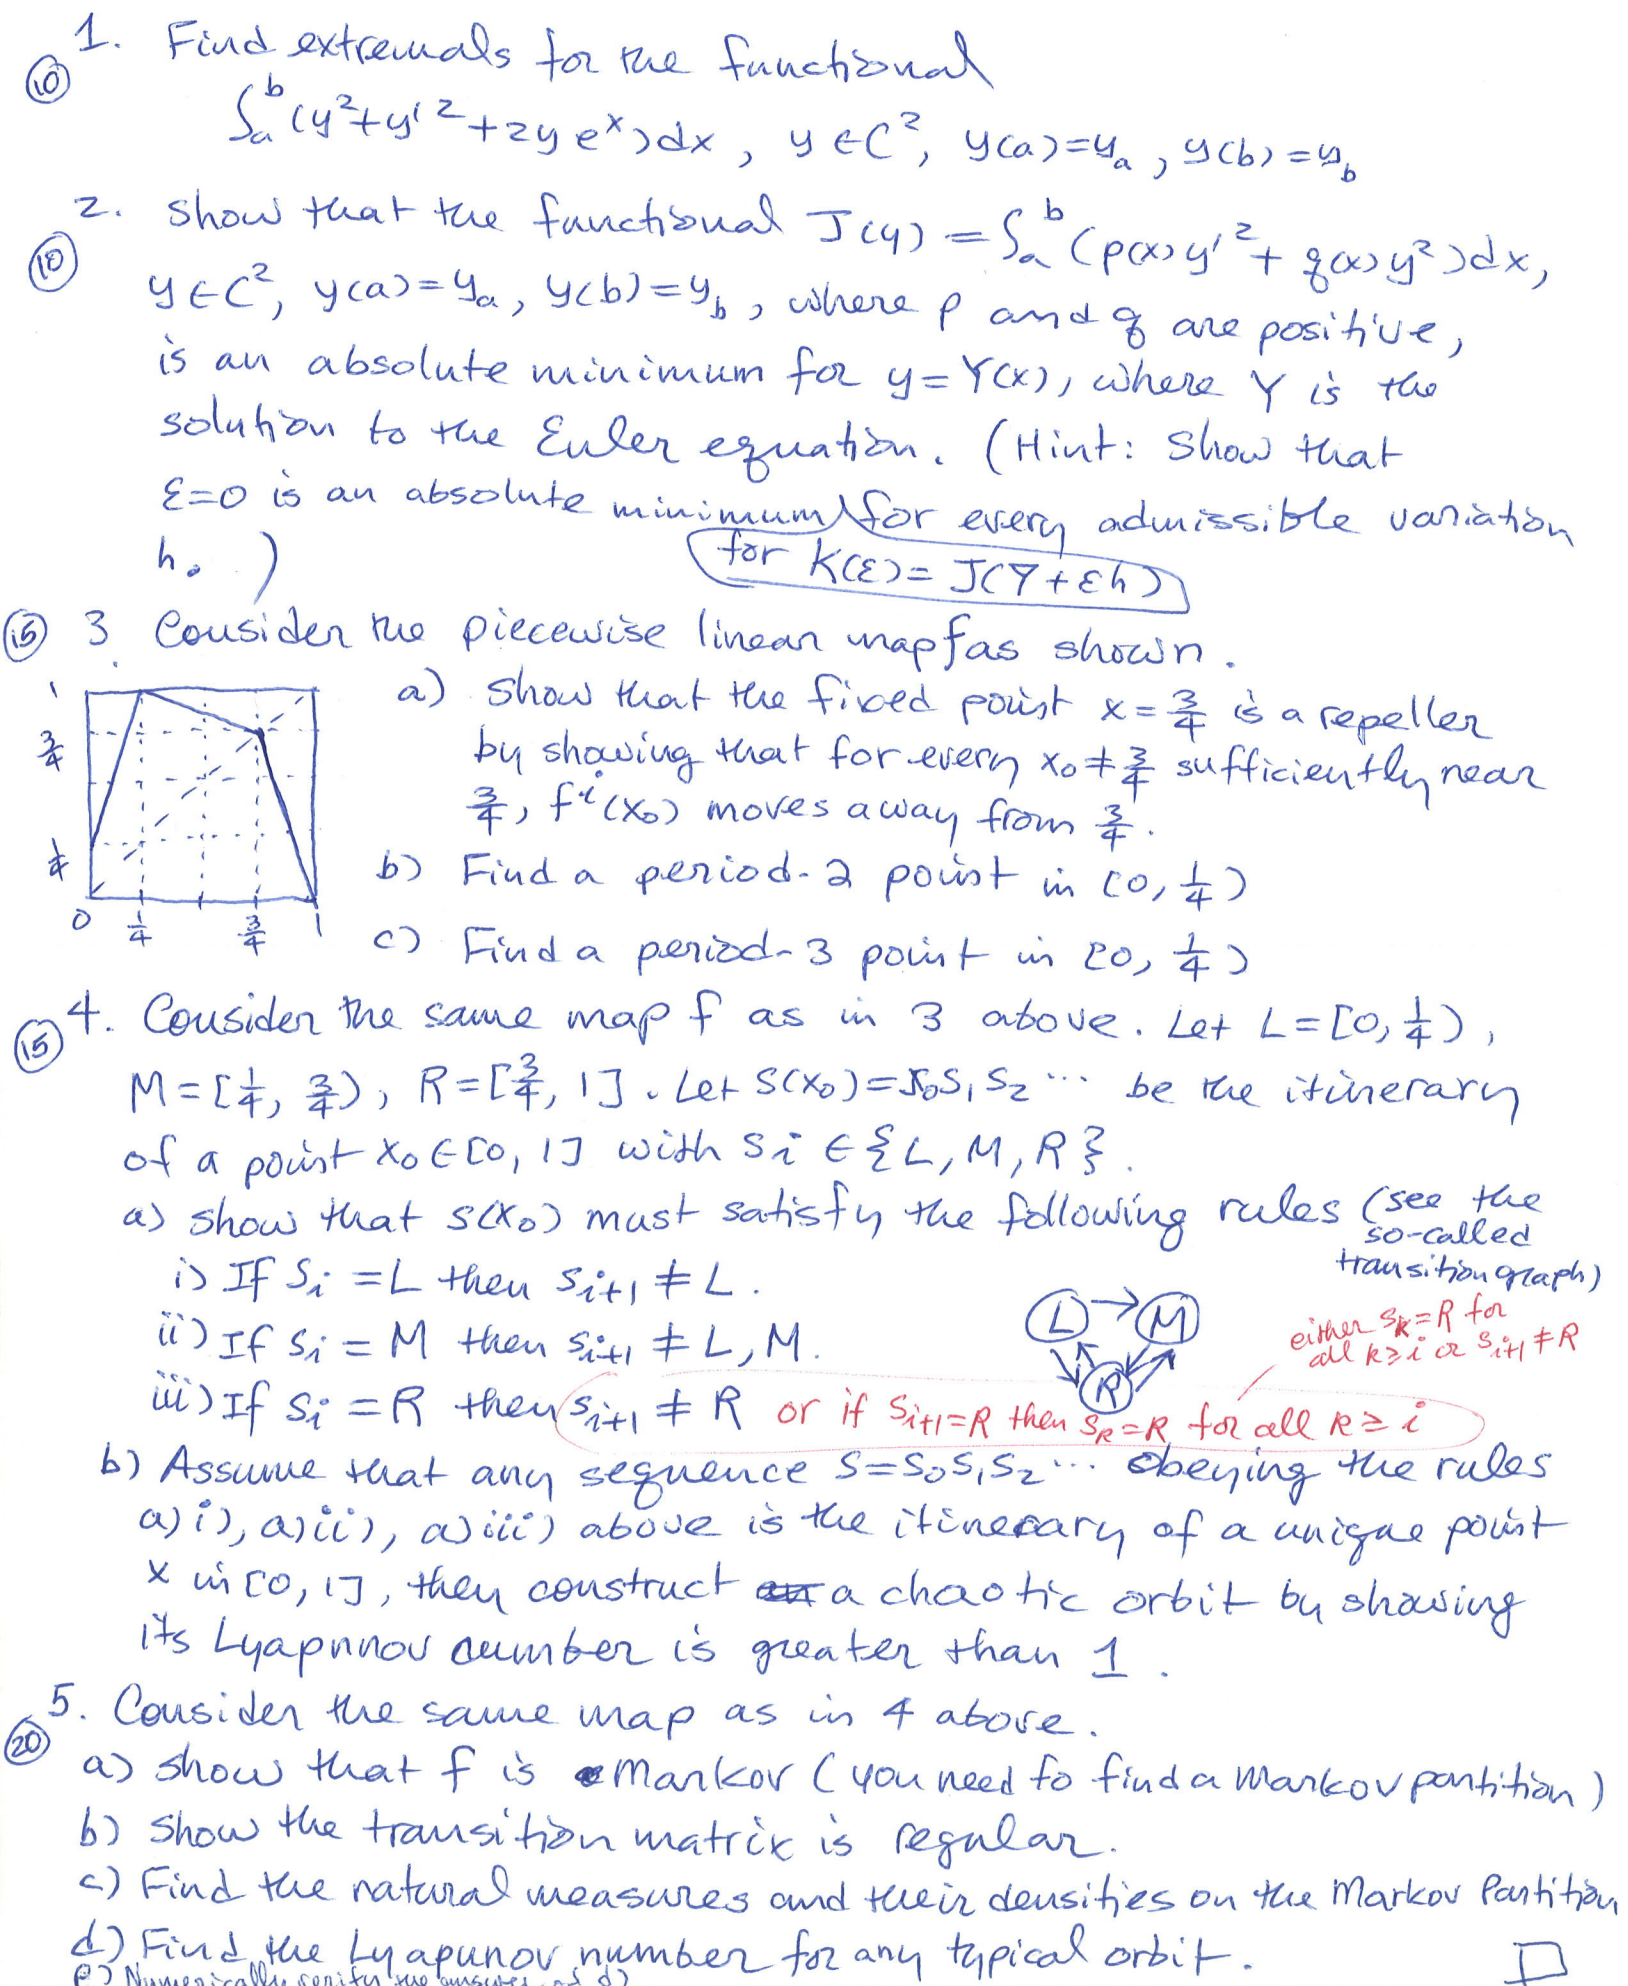 1. Find extremals for the functional
⑩
∫_a^b (y²+y'²+2y eˣ)dx, y∈C², y(a)=y_a, y(b)=y_b
2. Show that the functional J(y)=∫_a^b (p(x)y'²+q(x)y²)dx,
⑩
y∈C², y(a)=y_a, y(b)=y_b, where p and q are positive,
is an absolute minimum for y=Y(x), where Y is the
solution to the Euler equation. (Hint: Show that
ε=0 is an absolute minimum for every admissible variation
h.) for K(ε)=J(Y+εh)
⑮ 3. Consider the piecewise linear map f as shown.
1
3/4
1/4
0 1/4 3/4 1
a) Show that the fixed point x=3/4 is a repeller
by showing that for every x₀≠3/4 sufficiently near
3/4, fⁱ(x₀) moves away from 3/4.
b) Find a period-2 point in [0, 1/4)
c) Find a period-3 point in [0, 1/4)
⑮ 4. Consider the same map f as in 3 above. Let L=[0, 1/4),
M=[1/4, 3/4), R=[3/4, 1]. Let S(x₀)=S₀S₁S₂... be the itinerary
of a point x₀∈[0, 1] with Sᵢ∈{L, M, R}.
a) show that S(x₀) must satisfy the following rules (see the
so-called
transition graph)
i) If Sᵢ=L then Sᵢ₊₁≠L.
ii) If Sᵢ=M then Sᵢ₊₁≠L, M.
L M
R
either Sₖ=R for
all k≥i or Sᵢ₊₁≠R
iii) If Sᵢ=R then Sᵢ₊₁≠R or if Sᵢ₊₁=R then Sₖ=R for all k≥i
b) Assume that any sequence S=S₀S₁S₂... obeying the rules
a)i), a)ii), a)iii) above is the itinerary of a unique point
x in [0, 1], then construct a chaotic orbit by showing
its Lyapunov number is greater than 1.
5. Consider the same map as in 4 above.
⑳
a) show that f is Markov (you need to find a Markov partition)
b) Show the transition matrix is regular.
c) Find the natural measures and their densities on the Markov Partition
d) Find the Lyapunov number for any typical orbit.
e) Numerically verify the answer of d)